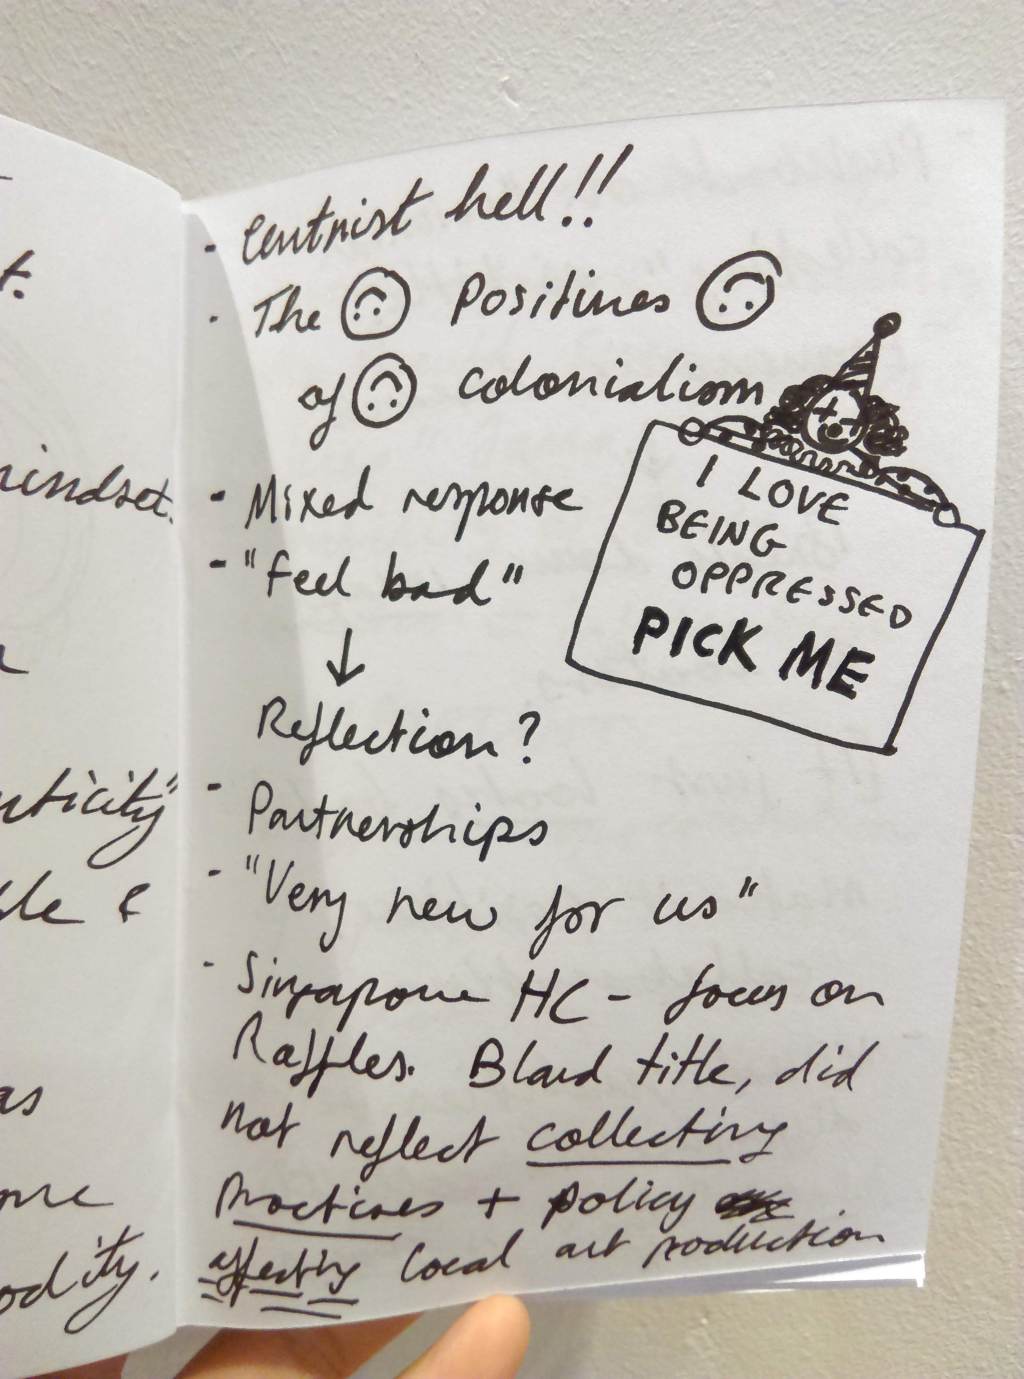 t.
mindset.
nticity"
le &
as
me
odity.
- Centrist hell!!
- The positives
of colonialism
I LOVE
BEING
OPPRESSED
PICK ME
- Mixed response
- "Feel bad"
↓
Reflection?
- Partnerships
- "Very new for us"
- Singapore HC - focus on
Raffles. Bland title, did
not reflect collecting
practices + policy
affecting local art production